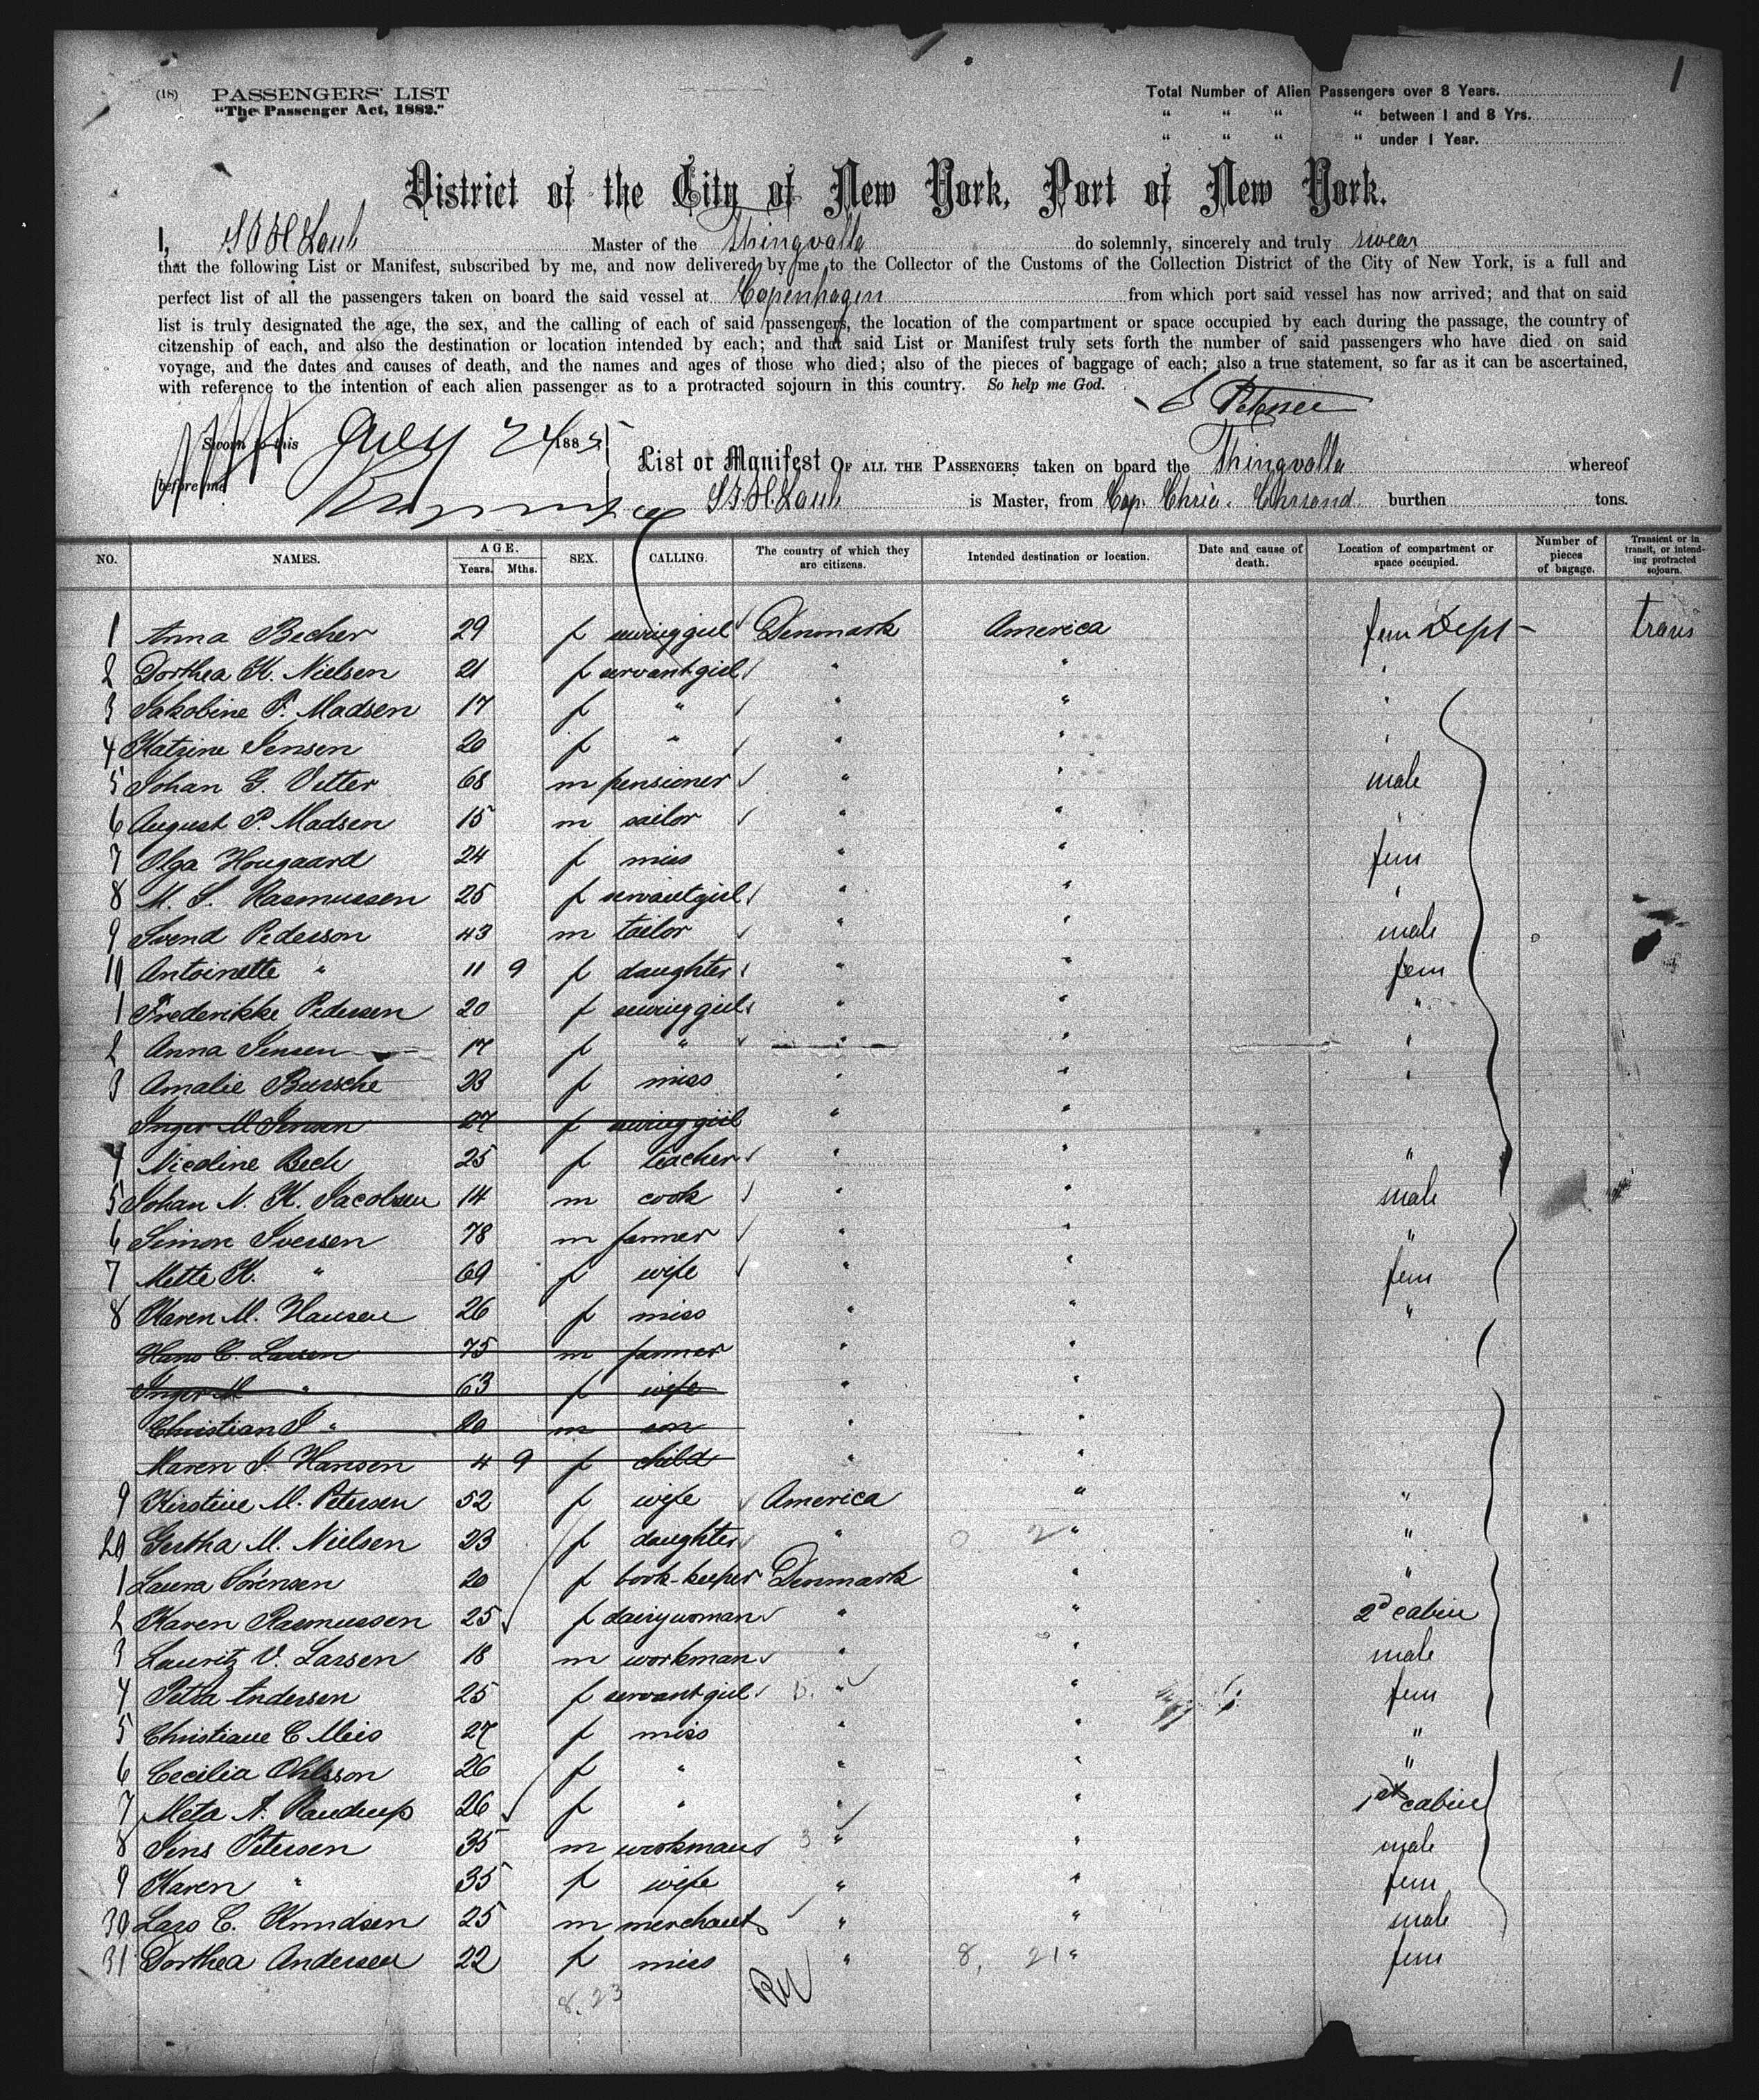 1
(18) PASSENGERS' LIST
"The Passenger Act, 1882."
Total Number of Alien Passengers over 8 Years.
" " " " between 1 and 8 Yrs.
" " " " under 1 Year.
District of the City of New York, Port of New York.
I, S.F.H. Laub Master of the Thingvalla do solemnly, sincerely and truly swear
that the following List or Manifest, subscribed by me, and now delivered by me to the Collector of the Customs of the Collection District of the City of New York, is a full and
perfect list of all the passengers taken on board the said vessel at Copenhagen from which port said vessel has now arrived; and that on said
list is truly designated the age, the sex, and the calling of each of said passengers, the location of the compartment or space occupied by each during the passage, the country of
citzenship of each, and also the destination or location intended by each; and that said List or Manifest truly sets forth the number of said passengers who have died on said
voyage, and the dates and causes of death, and the names and ages of those who died; also of the pieces of baggage of each; also a true statement, so far as it can be ascertained,
with reference to the intention of each alien passenger as to a protracted sojourn in this country. So help me God.
Sworn to this July 24 1885
before me
List or Manifest OF ALL THE PASSENGERS taken on board the Thingvalla whereof
S.F.H. Laub is Master, from Cop. Chria. Chrsand burthen tons.
NO. NAMES. AGE. Years. Mths. SEX. CALLING. The country of which they are citizens. Intended destination or location. Date and cause of death. Location of compartment or space occupied. Number of pieces of bagage. Transient or in transit, or intending protracted sojourn.
1 Anna Becher 29 f sewing girl Denmark America fem Dept trans
2 Dorthea K. Nielsen 21 f servant girl " " "
3 Jakobine P. Madsen 17 f " " " "
4 Katrine Jensen 20 f " " " "
5 Johan G. Vetter 68 m pensioner " " male
6 August P. Madsen 15 m sailor " " "
7 Olga Hougaard 24 f miss " " fem
8 M. S. Rasmussen 25 f servant girl " " "
9 Svend Pederson 43 m tailor " " male
10 Antoinette " 11 9 f daughter " " fem
1 Frederikke Pedersen 20 f sewing girl " " "
2 Anna Jensen 17 f " " " "
3 Amalie Bursche 23 f miss " " "
Inger M Jensen 27 f sewing girl " "
4 Nicoline Bech 25 f teacher " " "
5 Johan N. K. Jacobsen 14 m cook " " male
6 Simon Iversen 78 m farmer " " "
7 Mette K. " 69 f wife " " fem
8 Karen M. Hansen 26 f miss " " "
Hans C. Larsen 75 m farmer " "
Inger M " 63 f wife " "
Christian J " 20 m son " "
Maren J. Hansen 4 9 f child " "
9 Kirstine M. Petersen 52 f wife America " "
20 Gertha M. Nielsen 23 f daughter " 0 2 " "
1 Laura Sörensen 20 f book-keeper Denmark " "
2 Karen Rasmussen 25 f dairywoman " " 2d cabin
3 Lauritz V. Larsen 18 m workman " " male
4 Petra Andersen 25 f servant girl " " fem
5 Christiane C Meis 27 f miss " " "
6 Cecilia Ohlsson 26 f " " " "
7 Meta A. Raudrup 26 f " " " 1st cabin
8 Jens Petersen 35 m workman 3 " " male
9 Karen " 35 f wife " " fem
30 Lars C. Knudsen 25 m merchant " " male
31 Dorthea Andersen 22 f miss " 8, 21 " fem
8. 23